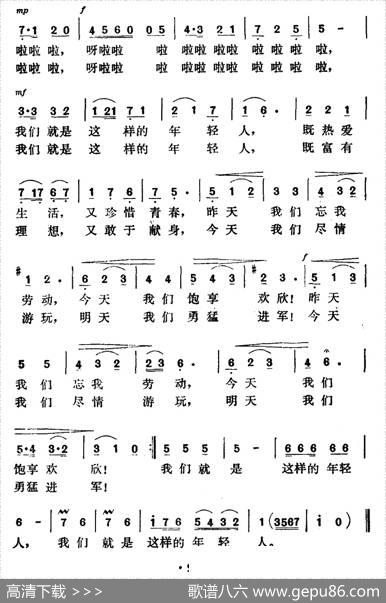 mp f
7·1 20 | 4560 05 | 4·3 4 2 | 7 2 5 | 5 - |
啦啦 啦, 呀啦啦 啦 啦啦 啦 啦 啦 啦 啦,
啦啦 啦, 呀啦啦 啦 啦啦 啦 啦 啦 啦 啦,
mf
3·3 3 2 | 1 21 7 1 | 2 1 7 | 1 6 · | 2 2 1 |
我们 就是 这 样的 年 轻 人, 既 热 爱
我们 就是 这 样的 年 轻 人, 既 富 有
7 17 6 7 | 1 7 6 | 7 5 · | 5 1 2 | 3 4 32 |
生 活, 又 珍 惜 青 春, 昨 天 我 们 忘我
理 想, 又 敢 于 献 身, 今 天 我 们 尽情
f
#1 2 · | 6 2 3 | 4 4 | 5 4 3 | #2 3 · | 5 1 3 |
劳 动, 今 天 我 们 饱 享 欢 欣! 昨 天
游 玩, 明 天 我 们 勇 猛 进 军! 今 天
5 5 | 4 3 2 | 23 6 · | 6 2 3 | 4 6 · |
我 们 忘 我 劳 动, 今 天 我 们
我 们 尽 情 游 玩, 明 天 我 们
5·4 3·2 | 3 1 0 :‖ 5 5 5 | 5 - | 6 6 6 6 6 |
饱享 欢 欣! 我 们 就 是 这样的 年轻
勇猛 进 军!
6 - | 7 6 | 7 6 | i 7 6 5 4 3 2 | 1 (3567 | i 0 ) ‖
人, 我 们 就 是 这样的 年 轻 人。
高清下载 >>>
歌谱八六 www.gepu86.com